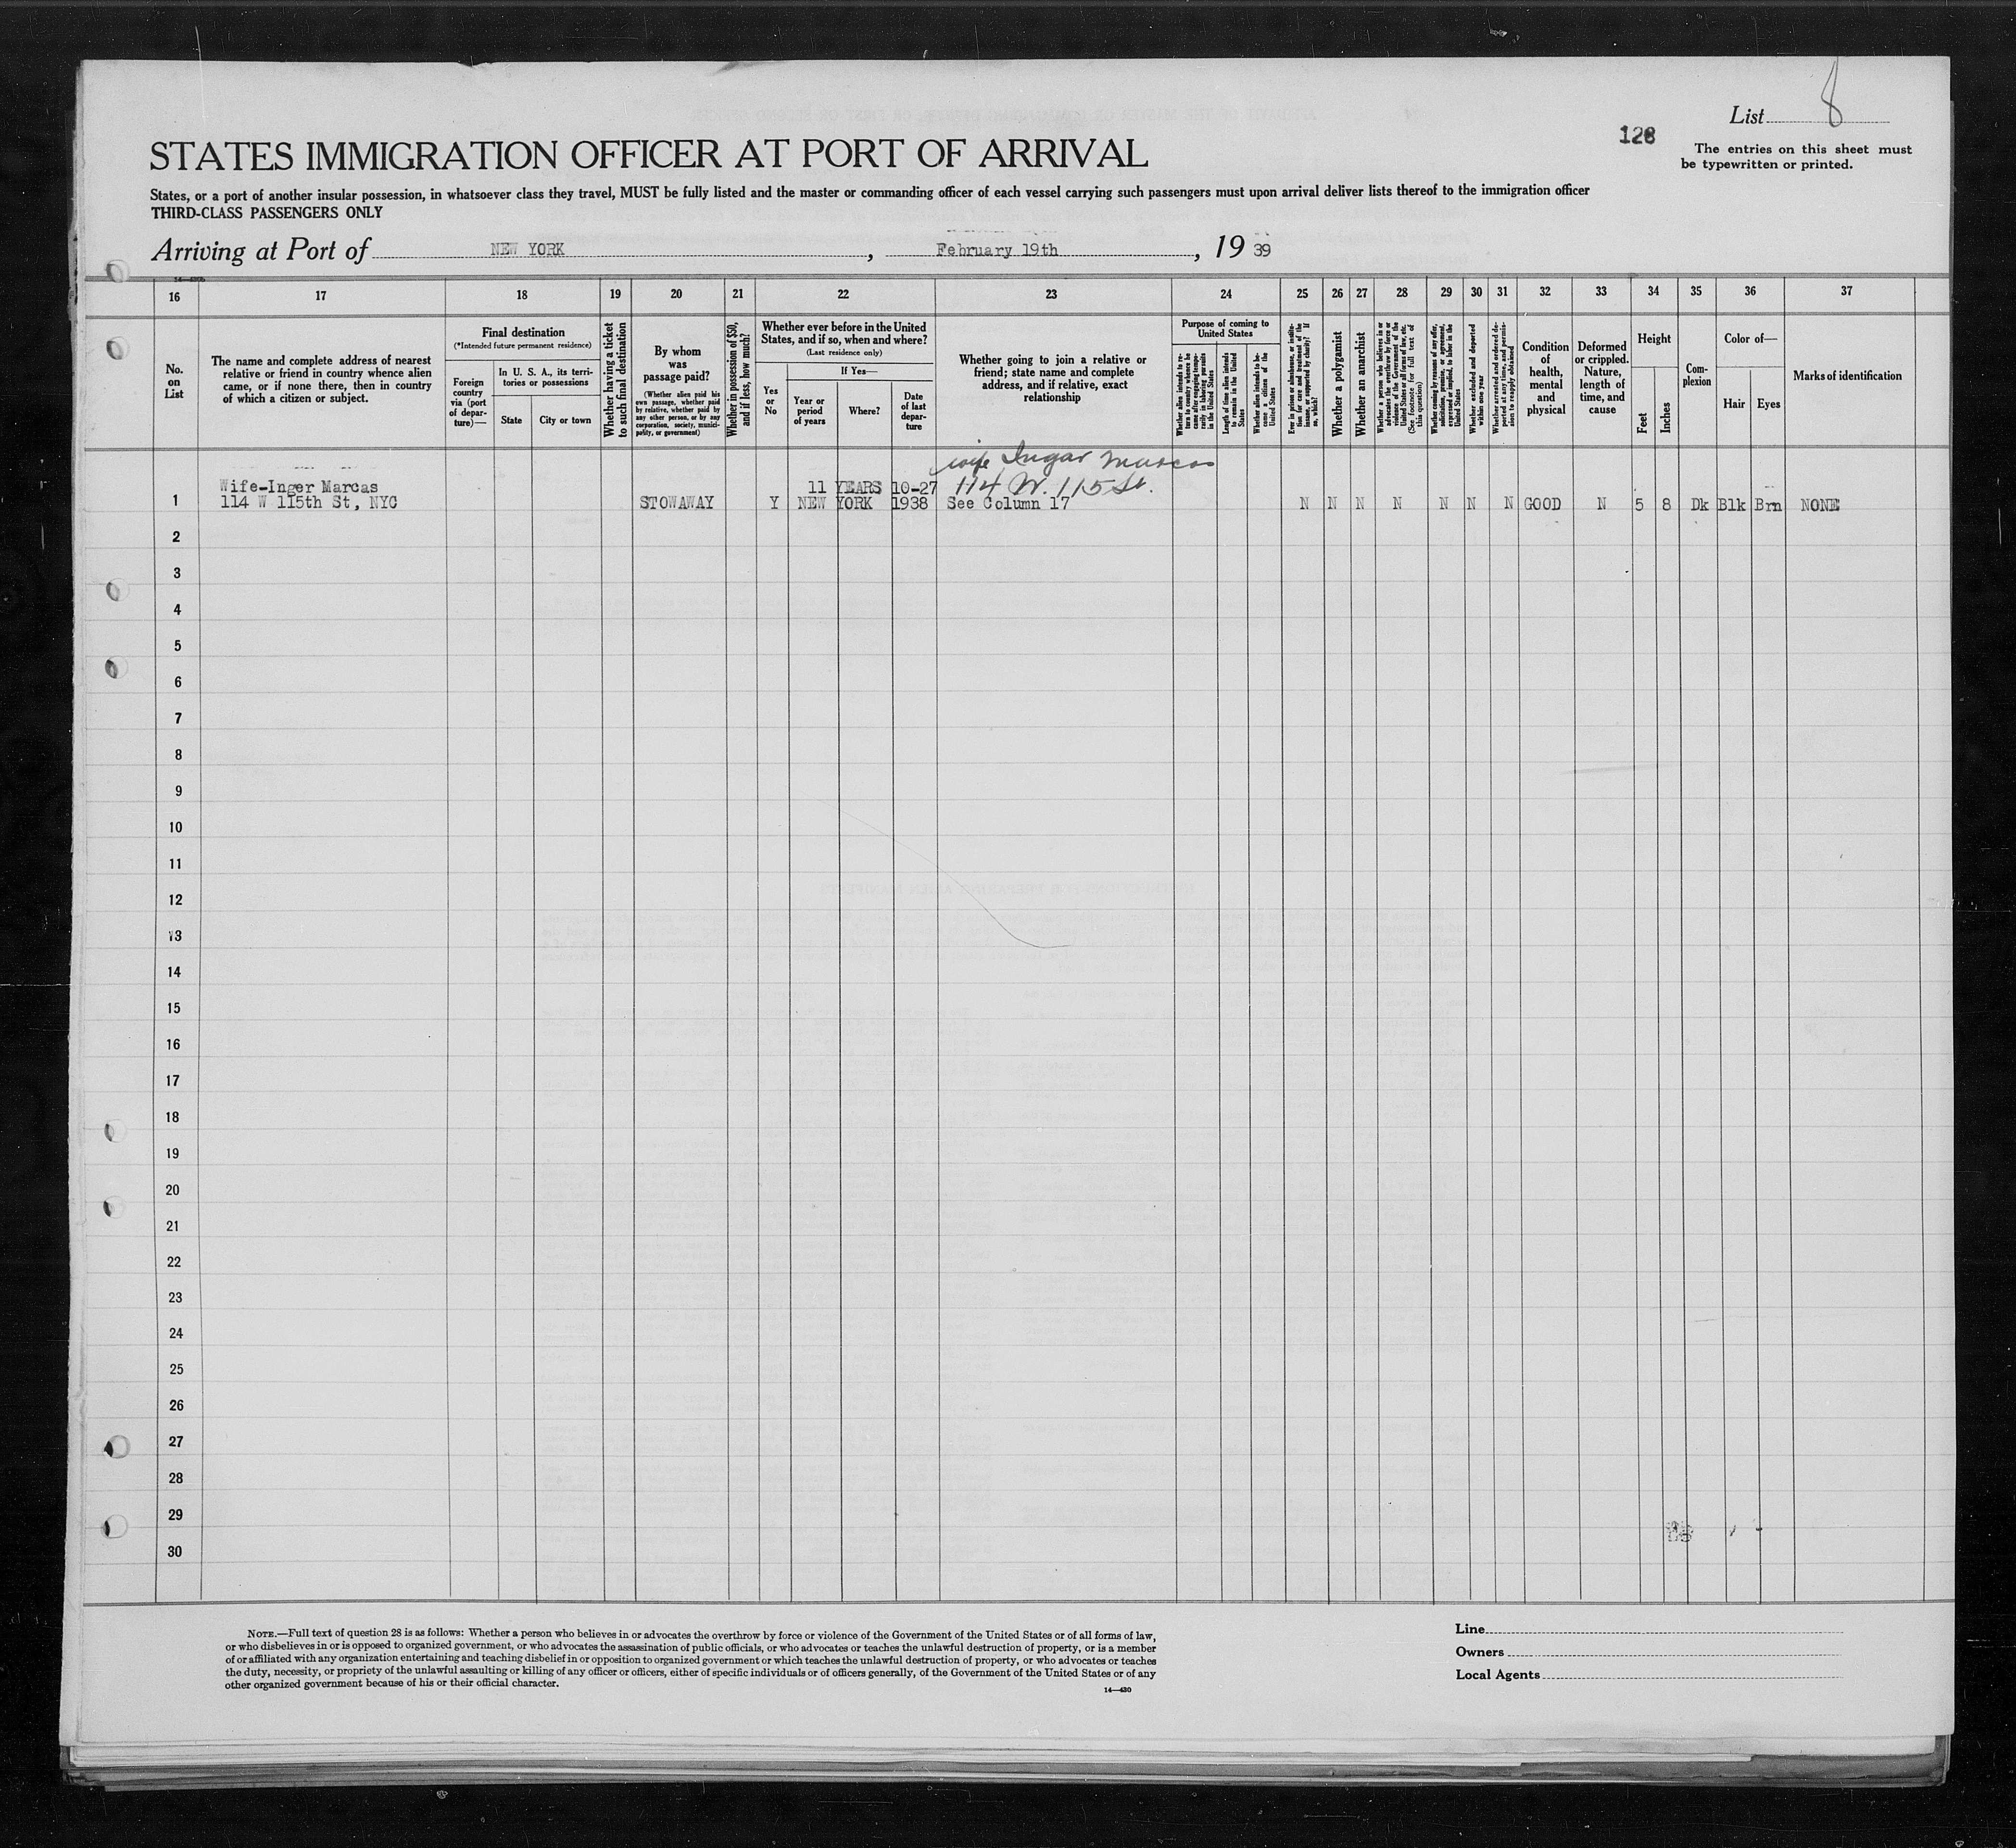 List 8
128
The entries on this sheet must
be typewritten or printed.
STATES IMMIGRATION OFFICER AT PORT OF ARRIVAL
States, or a port of another insular possession, in whatsoever class they travel, MUST be fully listed and the master or commanding officer of each vessel carrying such passengers must upon arrival deliver lists thereof to the immigration officer
THIRD-CLASS PASSENGERS ONLY
Arriving at Port of NEW YORK, February 19th, 19 39
16 17 18 19 20 21 22 23 24 25 26 27 28 29 30 31 32 33 34 35 36 37
No.
on
List
The name and complete address of nearest
relative or friend in country whence alien
came, or if none there, then in country
of which a citizen or subject.
Final destination
(*Intended future permanent residence)
Foreign
country
via (port
of depar-
ture)—
In U. S. A., its terri-
tories or possessions
State
City or town
Whether having a ticket
to such final destination
By whom
was
passage paid?
(Whether alien paid his
own passage, whether paid
by relative, whether paid by
any other person, or by any
corporation, society, munici-
pality, or government)
Whether in possession of $50,
and if less, how much?
Whether ever before in the United
States, and if so, when and where?
(Last residence only)
Yes
or
No
If Yes—
Year or
period
of years
Where?
Date
of last
depar-
ture
Whether going to join a relative or
friend; state name and complete
address, and if relative, exact
relationship
Purpose of coming to
United States
Whether alien intends to re-
turn to country whence he
came after engaging tempo-
rarily in laboring pursuits
in the United States
Length of time alien intends
to remain in the United
States
Whether alien intends to be-
come a citizen of the
United States
Ever in prison or almshouse, or institu-
tion for care and treatment of the
insane, or supported by charity? If
so, which?
Whether a polygamist
Whether an anarchist
Whether a person who believes in or
advocates the overthrow by force or
violence of the Government of the
United States or all forms of law, etc.
(See footnote for full text of
this question)
Whether coming by reasons of any offer,
solicitation, promise, or agreement,
expressed or implied, to labor in the
United States
Whether excluded and deported
within one year
Whether arrested and ordered de-
ported at any time, and permis-
sion to reapply obtained
Condition
of
health,
mental
and
physical
Deformed
or crippled.
Nature,
length of
time, and
cause
Height
Feet
Inches
Com-
plexion
Color of—
Hair
Eyes
Marks of identification
wife Ingar Marcas
Wife-Inger Marcas 11 YEARS 10-27 114 W. 115 St.
1 114 W 115th St, NYC STOWAWAY Y NEW YORK 1938 See Column 17 N N N N N N N GOOD N 5 8 Dk Blk Brn NONE
2
3
4
5
6
7
8
9
10
11
12
13
14
15
16
17
18
19
20
21
22
23
24
25
26
27
28
29
30
NOTE.—Full text of question 28 is as follows: Whether a person who believes in or advocates the overthrow by force or violence of the Government of the United States or of all forms of law,
or who disbelieves in or is opposed to organized government, or who advocates the assassination of public officials, or who advocates or teaches the unlawful destruction of property, or is a member
of or affiliated with any organization entertaining and teaching disbelief in or opposition to organized government or which teaches the unlawful destruction of property, or who advocates or teaches
the duty, necessity, or propriety of the unlawful assaulting or killing of any officer or officers, either of specific individuals or of officers generally, of the Government of the United States or of any
other organized government because of his or their official character.
14—430
Line
Owners
Local Agents